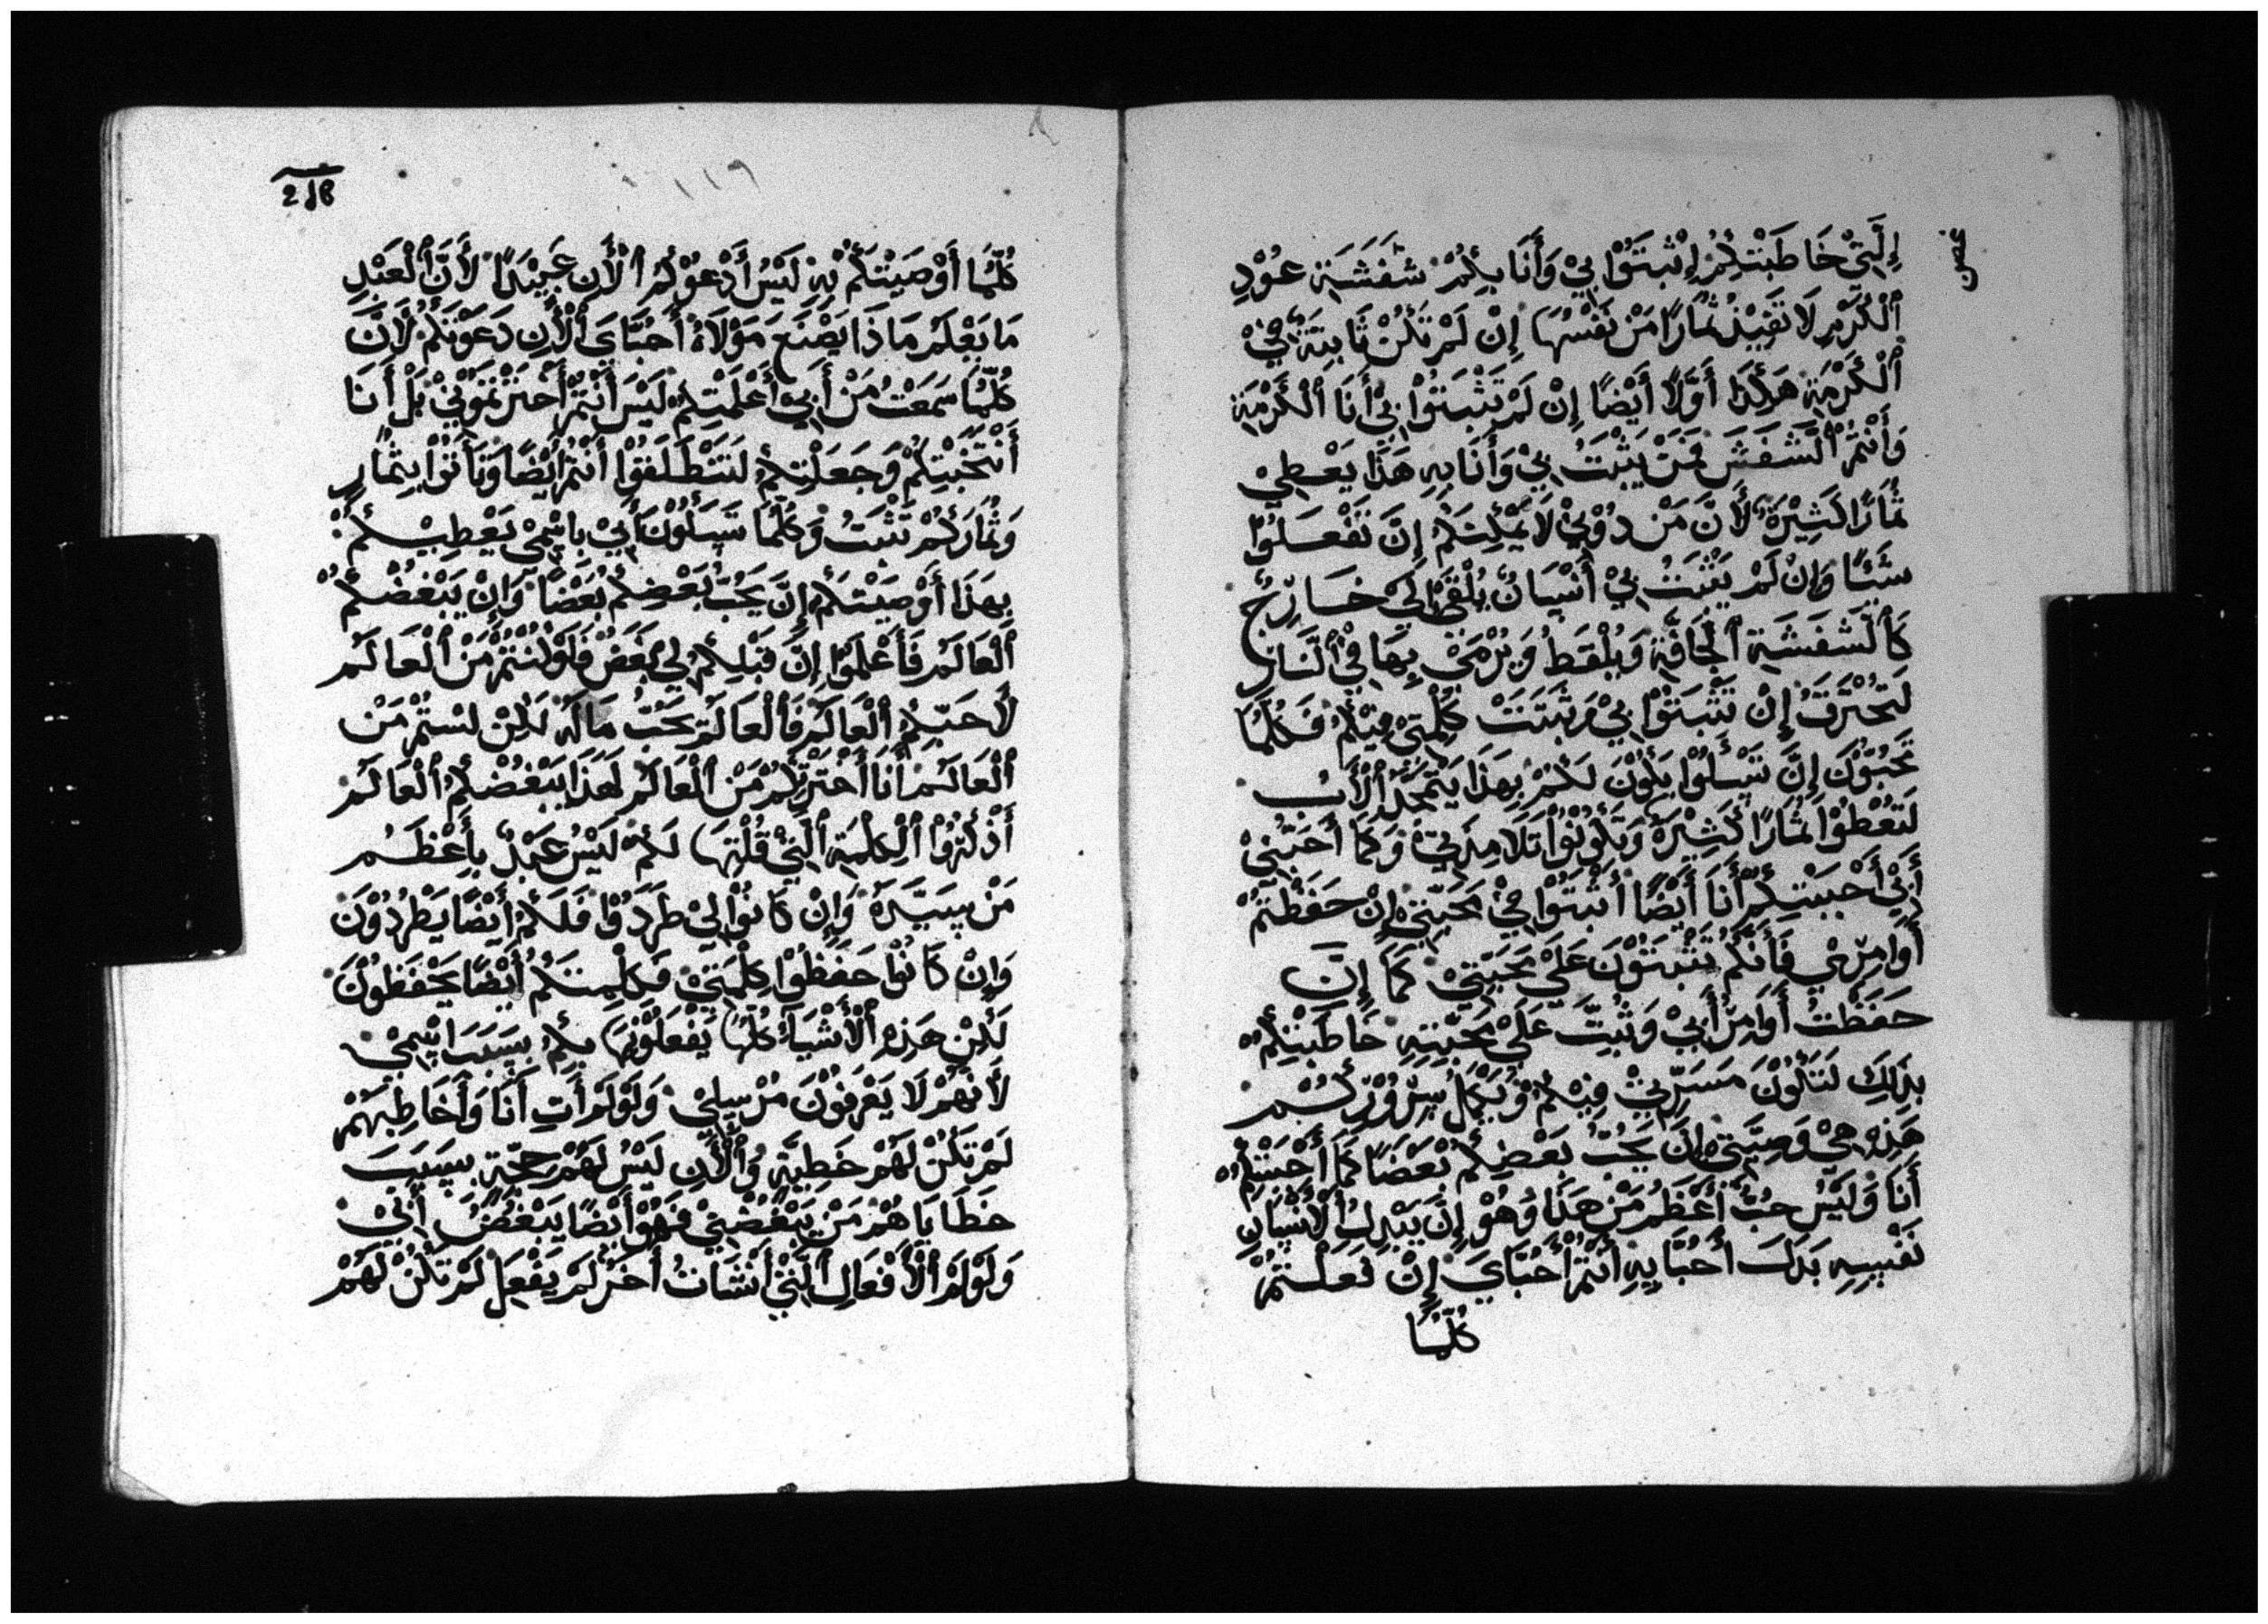 غصن
إِلَّتِيْ خَاطَبْتِكُمْ إِثْبَتَوْا بِيْ وَأَنَا بِكُمْ شَفَشَةِ عُوْدِ
ٱلْكَرْمِ لَا تَقْبِذُ ثُمَارًا مَنْ نَفْسُهَا إِنْ لَمْ تَكُنْ ثَابِتَةً فِيْ
ٱلْكَرْمَةِ هَكَذَا أَوَّلًا أَيْضًا إِنْ لَمْ تَثْبَتُوْا بِيْ أَنَا ٱلْكَرْمَةِ
وَأَنْتُمْ ٱلْشَفَشَ فَمَنْ يَثْبَتُ بِيْ وَأَنَا بِهِ هَذَا يَعْطِيْ
ثُمَارًا كَثِيْرَةً لأَنَّ مَنْ دُوْنِيْ لَا يَمْكِنَكُمْ إِنَّ تَفْعَلُوْا
شَئًا وَإِنْ لَمْ يَثْبَتُ بِيْ أَنْسَانٌ يُلْقَى إِلَىْ خَارِجٌ
كَٱلْشَفَشَةِ ٱلْجَافَّةِ وَيُلْقَطُ وَيُرْمَىْ بِهَا فِيْ ٱلنَّارِ
لَتَحْتَرَقُ إِنْ تَثْبَتَوْا بِيْ وَثَبَتَتْ كَلِمَتِيْ فِيْكُمْ فَكُلَّمَا
تَحْبُّوْنَ إِنَّ تَسْأَلُوْا يَكُوْنَ لَكُمْ بِهَذَا يَتْمَجَّدُ ٱلْأَبُ
لَتَعْطُوْا ثُمَارًا كَثِيْرَةً وَتَكُوْنُوْا تَلَامِذَتِيْ وَكَمَا أَحَبَّنِيْ
أَبِيْ أَحْبَبْتِكُمْ أَنَا أَيْضًا أَثْبَتَوْا فِيْ مَحَبَّتِيْ إِنْ حَفَظْتُمْ
أَوَامِرِيْ فَأَنَّكُمْ تَثْبَتَوْنَ عَلَىْ مَحَبَّتِيْ كَمَا إِنَّ
حَفَظْتُ أَوَامِرْ أَبِيْ وَثَبِتَّ عَلَىْ مَحَبَّتِهِ خَاطَبْتِكُمْ
بِذَالِكَ لَتَكُوْنَ مَسَرَّتِيْ فِيْكُمْ وَيَكْمَلُ سِرُوْرِكُمْ
هَذِهِ هِيْ وَصِيَّتِيْ إِنَّ يَحُبُّ بَعْضِكُمْ بَعْضًا كَمَا أَحْبَبْتِكُمْ
أَنَا وَلَيْسَ حُبٌّ أَعْظَمُ مَنْ هَذَا وَهُوْ إِنَّ يَبْدِلُ ٱلْأَنْسَانِ
نَفْسِهِ بَدَلَ أَحْبَّايِهِ أَنْتُمْ أَحْبَّايَ إِنْ فَعَلْتُمْ
كُلَّمَا
218
كُلَّمَا أَوْصَيْتَكُمْ بِهِ لَيْسُ أَدْعُوْكُمْ ٱلْأَنِ عَبِيْدًا لأَنَّ ٱلْعَبْدِ
مَا يَعْلَمُ مَا ذَا يَصْنَعَ مَوْلَاهُ أَحْبَّايَ ٱلْأَنِ دَعَوْتَكُمْ لأَنَّ
كُلَّمَا سَمَعْتُ مَنْ أَبِيْ أَعْلَمْتِكُمْ لَيْسَ أَنْتُمْ أَخْتَرْتَمَوْنِيْ بَلْ أَنَا
أَنْتَخَبْتِكُمْ وَجَعَلْتِكُمْ لَتَنْطَلَقُوْا أَنْتُمْ أَيْضًا وَتَأَتَوْا بِثُمَارِ
وَثُمَارَكُمْ تَثْبَتُ وَكُلَّمَا تَسَلُوْنَ أَبِيْ بِاسْمِيْ يَعْطِيْكُمْ
بِهَذَا أَوْصَيْتَكُمْ إِنَّ يَحُبُّ بَعْضِكُمْ بَعْضًا وَإِنْ يَبْغُضْكُمْ
ٱلْعَالَمُ فَأَعْلَمُوْا إِنَّ قَبْلِكُمْ لِيْ بَغَضَ فَلَوْكُنْتُمْ مَنْ ٱلْعَالَمُ
لَأَحَبّكُمْ ٱلْعَالَمُ فَٱلْعَالَمُ يَحُبُّ مَالَهُ لَكِنْ لَسْتُمْ مَنْ
ٱلْعَالَمْ أَنَا أَخْتَرْتِكُمْ مَنْ ٱلْعَالَمُ لَهَذَا يَبْغُضْكُمْ ٱلْعَالَمُ
أَذْكُرُوْا ٱلْكِلْمَةِ ٱلَّتِيْ قُلْتَهَا لَكُمْ لَيْسُ عَبْدٌ بِأَعْظَمُ
مَنْ سِيَّدَهُ وَإِنْ كَانُوْا لِيْ طَرَدَوْا فَلَكُمْ أَيْضًا يَطْرُدُوْنَ
وَإِنْ كَانُوْا حَفَظُوْا كِلْمَتِيْ فَكِلْمِتَكُمْ أَيْضًا يَحْفَظُوْنَ
لَكِنْ هَذِهِ ٱلْأَشْيَاءُ كُلُّهَا يَفْعَلُوْنَهَا بِكُمْ بِسَبَبَ اسْمِيْ
لأَنَّهُمْ لَا يَعْرَفُوْنَ مُرْسِلِيْ وَلَوْلَمْ أَتِ أَنَا وَأَخَاطِبَهُمْ
لَمْ تَكُنْ لَهُمْ خَطِيَّةٌ وَٱلْأَنِ لَيْسُ لَهُمْ حجَّةٍ بِسَبَبَ
خَطَايَاهُمْ مَنْ يَبْغُضْنِيْ فَهُوْ أَيْضًا يَبْغُضُ أَبِيْ
وَلَوْلَمْ ٱلْأَفْعَالِ ٱلَّتِيْ أَنْسَانُ أَخَرُ لَمْ يَفْعَلُ لَمْ تَكُنْ لَهُمْ